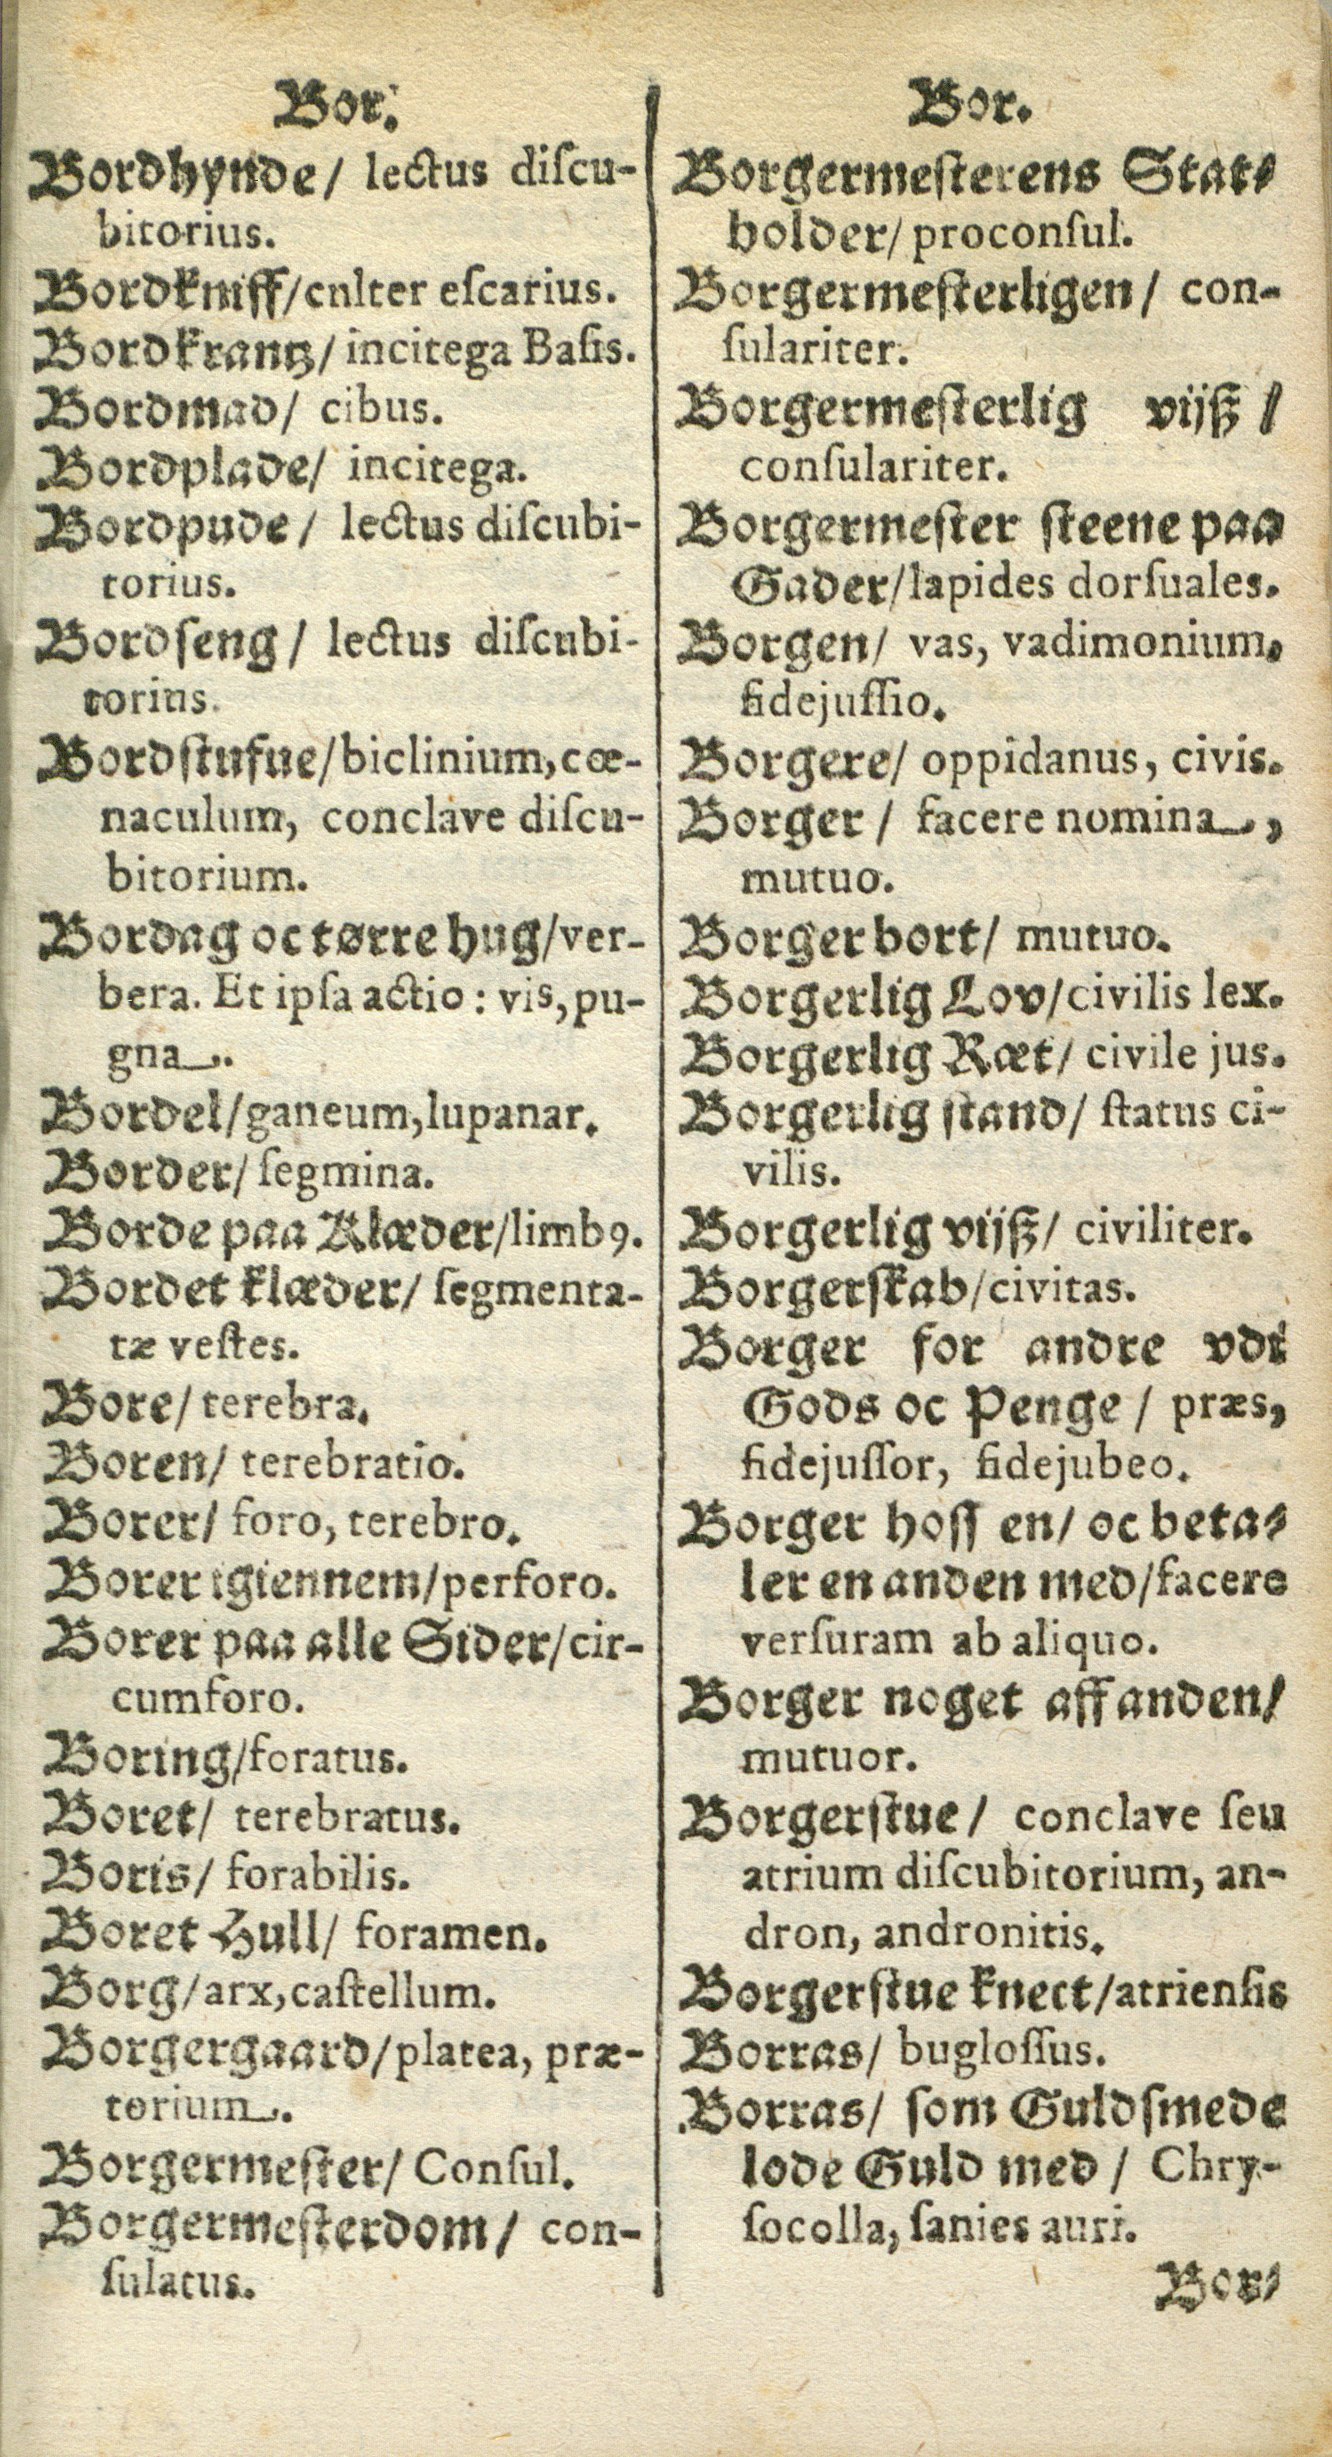 Bor.
Bordhynde/ lectus diſcu-
bitorius.
Bordkniff/cnlter eſcarius.
Bordkrantz/ incitega Baſis.
Bordmad/ cibus.
Bordplade/ incitega.
Bordpude/ lectus diſcubi-
torius.
Bordſeng/ lectus diſcubi-
torius.
Bordſtufue/biclinium, cœ-
naculum, conclave diſcu-
bitorium.
Bordag oc tørre hug/ver-
bera. Et ipſa actio: vis, pu-
gna.
Bordel/ganeum, lupanar.
Border/ ſegmina.
Borde paa Klæder/limb9.
Bordet klæder/ ſegmenta-
tæ veſtes.
Bore/ terebra.
Boren/ terebratio.
Borer/ foro, terebro.
Borer igiennem/perforo.
Borer paa alle Sider/cir-
cumforo.
Boring/foratus.
Boret/ terebratus.
Boris/ forabilis.
Boret Hull/ foramen.
Borg/arx, caſtellum.
Borgergaard/platea, præ-
torium.
Borgermeſter/ Conſul.
Borgermeſterdom/ con-
ſulatus.
Bor.
Borgermeſterens Stat-
holder/ proconſul.
Borgermeſterligen/ con-
ſulariter.
Borgermeſterlig vijß/
conſulariter.
Borgermeſter ſteene paa
Gader/lapides dorſuales.
Borgen/ vas, vadimonium,
fidejuſſio.
Borgere/ oppidanus, civis.
Borger/ facere nomina,
mutuo.
Borger bort/ mutuo.
Borgerlig Lov/civilis lex.
Borgerlig Ræt/ civile jus.
Borgerlig ſtand/ ſtatus ci-
vilis.
Borgerlig vijß/ civiliter.
Borgerſkab/civitas.
Borger for andre vdi
Gods oc Penge/ præs,
fidejuſſor, fidejubeo.
Borger hoſſ en/ oc beta-
ler en anden med/facere
verſuram ab aliquo.
Borger noget aff anden/
mutuor.
Borgerſtue/ conclave ſeu
atrium diſcubitorium, an-
dron, andronitis.
Borgerſtue knect/atrienſis
Borras/ bugloſſus.
Borras/ ſom Guldſmede
lode Guld med/ Chry-
ſocolla, ſanies auri.
Bor-